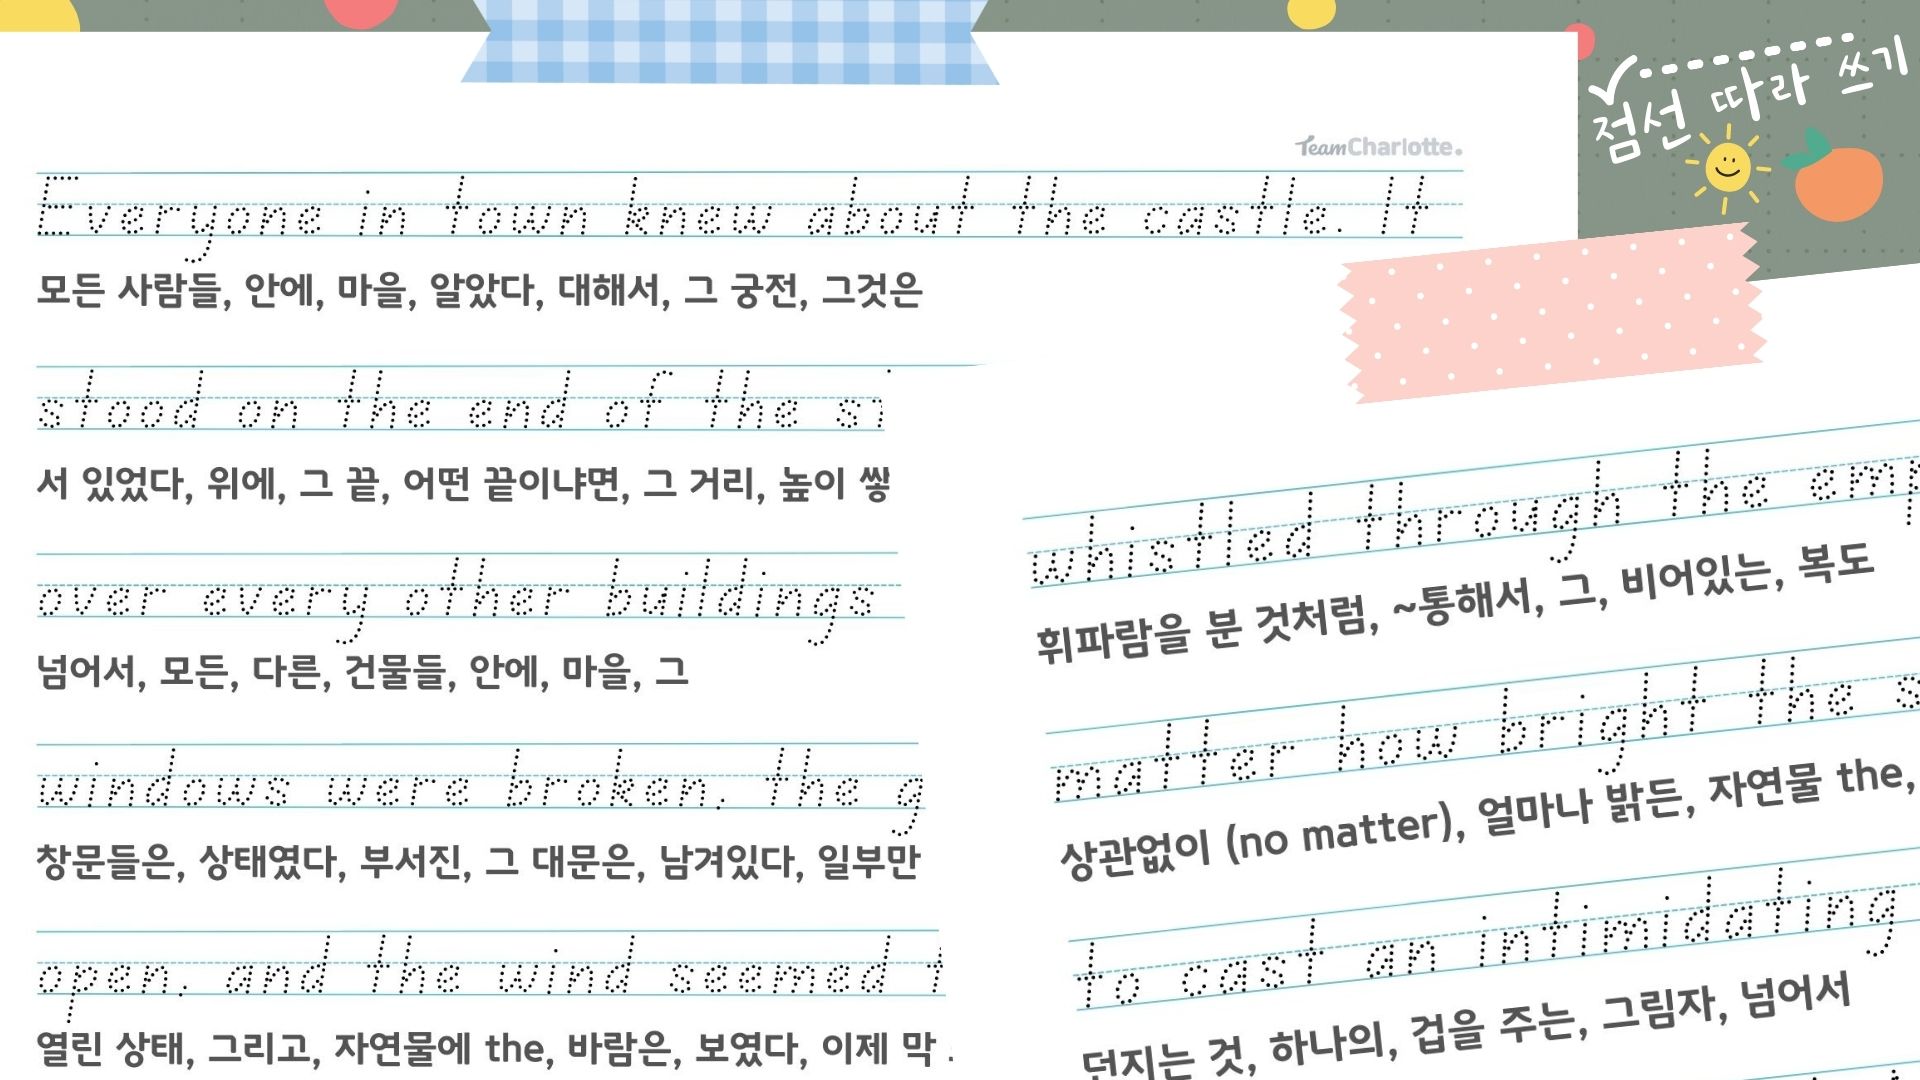 점선 따라 쓰기
TeamCharlotte.
Everyone in town knew about the castle. It
모든 사람들, 안에, 마을, 알았다, 대해서, 그 궁전, 그것은
stood on the end of the
서 있었다, 위에, 그 끝, 어떤 끝이냐면, 그 거리, 높이
over every other buildings
넘어서, 모든, 다른, 건물들, 안에, 마을, 그
windows were broken, the
창문들은, 상태였다, 부서진, 그 대문은, 남겨있다, 일부만
open, and the wind seemed
열린 상태, 그리고, 자연물에 the, 바람은, 보였다, 이제 막
whistled through the
휘파람을 분 것처럼, ~통해서, 그, 비어있는, 복도
matter how bright the
상관없이 (no matter), 얼마나 밝든, 자연물 the,
to cast an intimidating
던지는 것, 하나의, 겁을 주는, 그림자, 넘어서